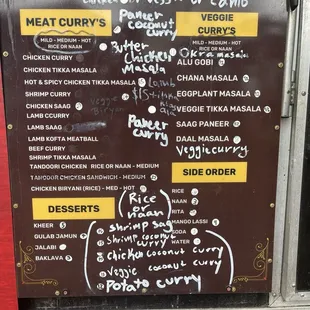 MEAT CURRY'S
MILD - MEDIUM - HOT
RICE OR NAAN
CHICKEN CURRY
CHICKEN TIKKA MASALA
HOT & SPICY CHICKEN TIKKA MASALA
SHRIMP CURRY
CHICKEN SAAG
LAMB CCURRY
LAMB SAAG
LAMB KOFTA MEATBALL
BEEF CURRY
SHRIMP TIKKA MASALA
TANDOORI CHICKEN RICE OR NAAN - MEDIUM
TANDOORI CHICKEN SANDWICH - MEDIUM
CHICKEN BIRYANI (RICE) - MED - HOT
DESSERTS
KHEER
GULAB JAMUN
JALABI
BAKLAVA
Paneer
coconut
curry
Butter
Chicken
Masala
Lamb
Paneer
curry
(Rice
or
naan)
shrimp saag
shrimp coconut
curry
chicken coconut curry
veggie coconut curry
Potato curry
VEGGIE
CURRY'S
MILD - MEDIUM - HOT
RICE OR NAAN
Okra masala
ALU GOBI
CHANA MASALA
EGGPLANT MASALA
VEGGIE TIKKA MASALA
SAAG PANEER
DAAL MASALA
Veggie curry
SIDE ORDER
RICE
NAAN
RITA
MANGO LASSI
SODA
WATER